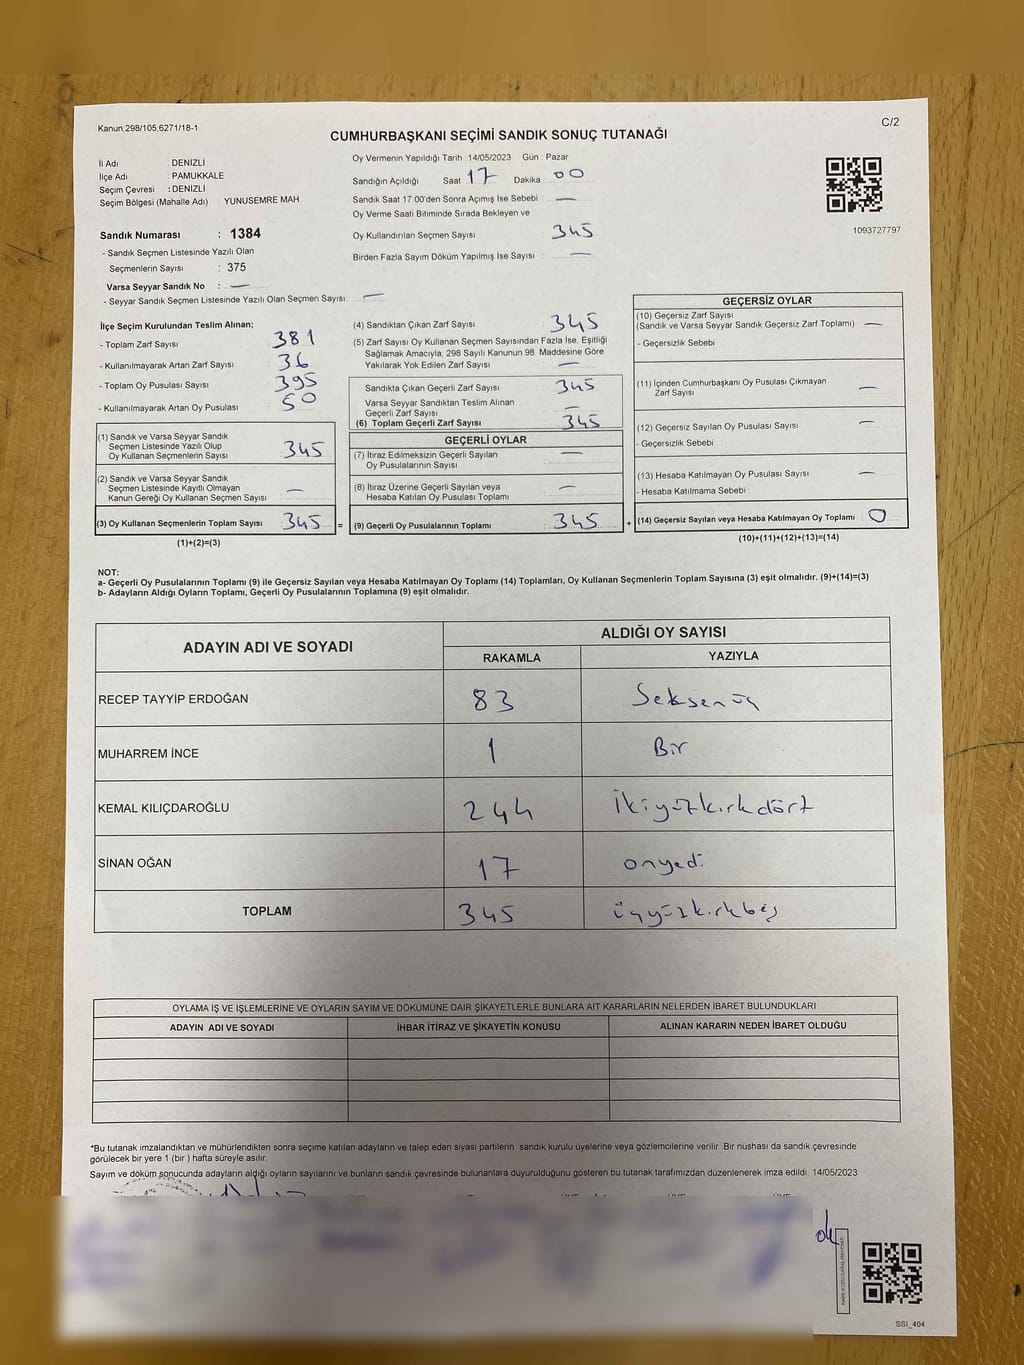 Kanun:298/105,6271/18-1
C/2
CUMHURBAŞKANI SEÇİMİ SANDIK SONUÇ TUTANAĞI
İl Adı : DENİZLİ
İlçe Adı : PAMUKKALE
Seçim Çevresi : DENİZLİ
Seçim Bölgesi (Mahalle Adı) : YUNUSEMRE MAH
Sandık Numarası : 1384
- Sandık Seçmen Listesinde Yazılı Olan
Seçmenlerin Sayısı : 375
Varsa Seyyar Sandık No : —
- Seyyar Sandık Seçmen Listesinde Yazılı Olan Seçmen Sayısı: —
Oy Vermenin Yapıldığı Tarih : 14/05/2023 Gün : Pazar
Sandığın Açıldığı Saat 17 Dakika : 00
Sandık Saat 17.00'den Sonra Açımış İse Sebebi : —
Oy Verme Saati Bitiminde Sırada Bekleyen ve
Oy Kullandırılan Seçmen Sayısı : 345
Birden Fazla Sayım Döküm Yapılmış İse Sayısı : —
1093727797
İlçe Seçim Kurulundan Teslim Alınan;
- Toplam Zarf Sayısı : 381
- Kullanılmayarak Artan Zarf Sayısı : 36
- Toplam Oy Pusulası Sayısı : 395
- Kullanılmayarak Artan Oy Pusulası : 50
(1) Sandık ve Varsa Seyyar Sandık
Seçmen Listesinde Yazılı Olup
Oy Kullanan Seçmenlerin Sayısı : 345
(2) Sandık ve Varsa Seyyar Sandık
Seçmen Listesinde Kayıtlı Olmayan
Kanun Gereği Oy Kullanan Seçmen Sayısı : —
(3) Oy Kullanan Seçmenlerin Toplam Sayısı : 345
(1)+(2)=(3)
=
(4) Sandıktan Çıkan Zarf Sayısı : 345
(5) Zarf Sayısı Oy Kullanan Seçmen Sayısından Fazla İse, Eşitliği
Sağlamak Amacıyla; 298 Sayılı Kanunun 98. Maddesine Göre
Yakılarak Yok Edilen Zarf Sayısı : —
Sandıkta Çıkan Geçerli Zarf Sayısı : 345
Varsa Seyyar Sandıktan Teslim Alınan
Geçerli Zarf Sayısı : —
(6) Toplam Geçerli Zarf Sayısı : 345
GEÇERLİ OYLAR
(7) İtiraz Edilmeksizin Geçerli Sayılan : —
Oy Pusulalarının Sayısı
(8) İtiraz Üzerine Geçerli Sayılan veya : —
Hesaba Katılan Oy Pusulası Toplamı
(9) Geçerli Oy Pusulalarının Toplamı : 345
+
GEÇERSİZ OYLAR
(10) Geçersiz Zarf Sayısı
(Sandık ve Varsa Seyyar Sandık Geçersiz Zarf Toplamı) : —
- Geçersizlik Sebebi :
(11) İçinden Cumhurbaşkanı Oy Pusulası Çıkmayan
Zarf Sayısı : —
(12) Geçersiz Sayılan Oy Pusulası Sayısı : —
- Geçersizlik Sebebi :
(13) Hesaba Katılmayan Oy Pusulası Sayısı : —
- Hesaba Katılmama Sebebi :
(14) Geçersiz Sayılan veya Hesaba Katılmayan Oy Toplamı : 0
(10)+(11)+(12)+(13)=(14)
NOT:
a- Geçerli Oy Pusulalarının Toplamı (9) ile Geçersiz Sayılan veya Hesaba Katılmayan Oy Toplamı (14) Toplamları, Oy Kullanan Seçmenlerin Toplam Sayısına (3) eşit olmalıdır. (9)+(14)=(3)
b- Adayların Aldığı Oyların Toplamı, Geçerli Oy Pusulalarının Toplamına (9) eşit olmalıdır.
ADAYIN ADI VE SOYADI
ALDIĞI OY SAYISI
RAKAMLA YAZIYLA
RECEP TAYYİP ERDOĞAN 83 Seksenüç
MUHARREM İNCE 1 Bir
KEMAL KILIÇDAROĞLU 244 İkiyüzkırkdört
SİNAN OĞAN 17 onyedi
TOPLAM 345 üçyüzkırkbeş
OYLAMA İŞ VE İŞLEMLERİNE VE OYLARIN SAYIM VE DÖKÜMÜNE DAİR ŞİKAYETLERLE BUNLARA AİT KARARLARIN NELERDEN İBARET BULUNDUKLARI
ADAYIN ADI VE SOYADI İHBAR İTİRAZ VE ŞİKAYETİN KONUSU ALINAN KARARIN NEDEN İBARET OLDUĞU
*Bu tutanak imzalandıktan ve mühürlendikten sonra seçime katılan adayların ve talep eden siyasi partilerin sandık kurulu üyelerine veya gözlemcilerine verilir. Bir nushası da sandık çevresinde
görülecek bir yere 1 (bir ) hafta süreyle asılır.
Sayım ve döküm sonucunda adayların aldığı oyların sayılarını ve bunların sandık çevresinde bulunanlara duyurulduğunu gösteren bu tutanak tarafımızdan düzenlenerek imza edildi. 14/05/2023
SSI_404